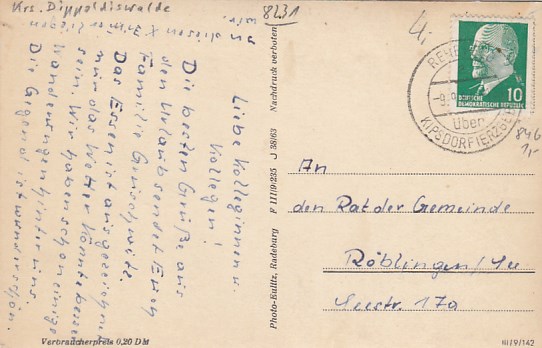 Krs. Dippoldiswalde
8231
Liebe Kolleginnen u.
Kollegen!
Die besten Grüße aus
dem Urlaub sendet Euch
Familie
Das Essen ist ausgezeichnet
nur das Wetter könnte besser
sein. Wir haben schon einige
Wanderungen hinter uns.
Die Gegend ist wunderschön.
Verbraucherpreis 0,20 DM
Photo-Kulitz, Radeburg F III/9/235 J 38/63 Nachdruck verboten
4,-
DEUTSCHE
DEMOKRATISCHE REPUBLIK
10
über
KIPSDORF (ERZGEB)
846
1,-
An
den Rat der Gemeinde
Röblingen/See
Seestr. 17a
III/9/142